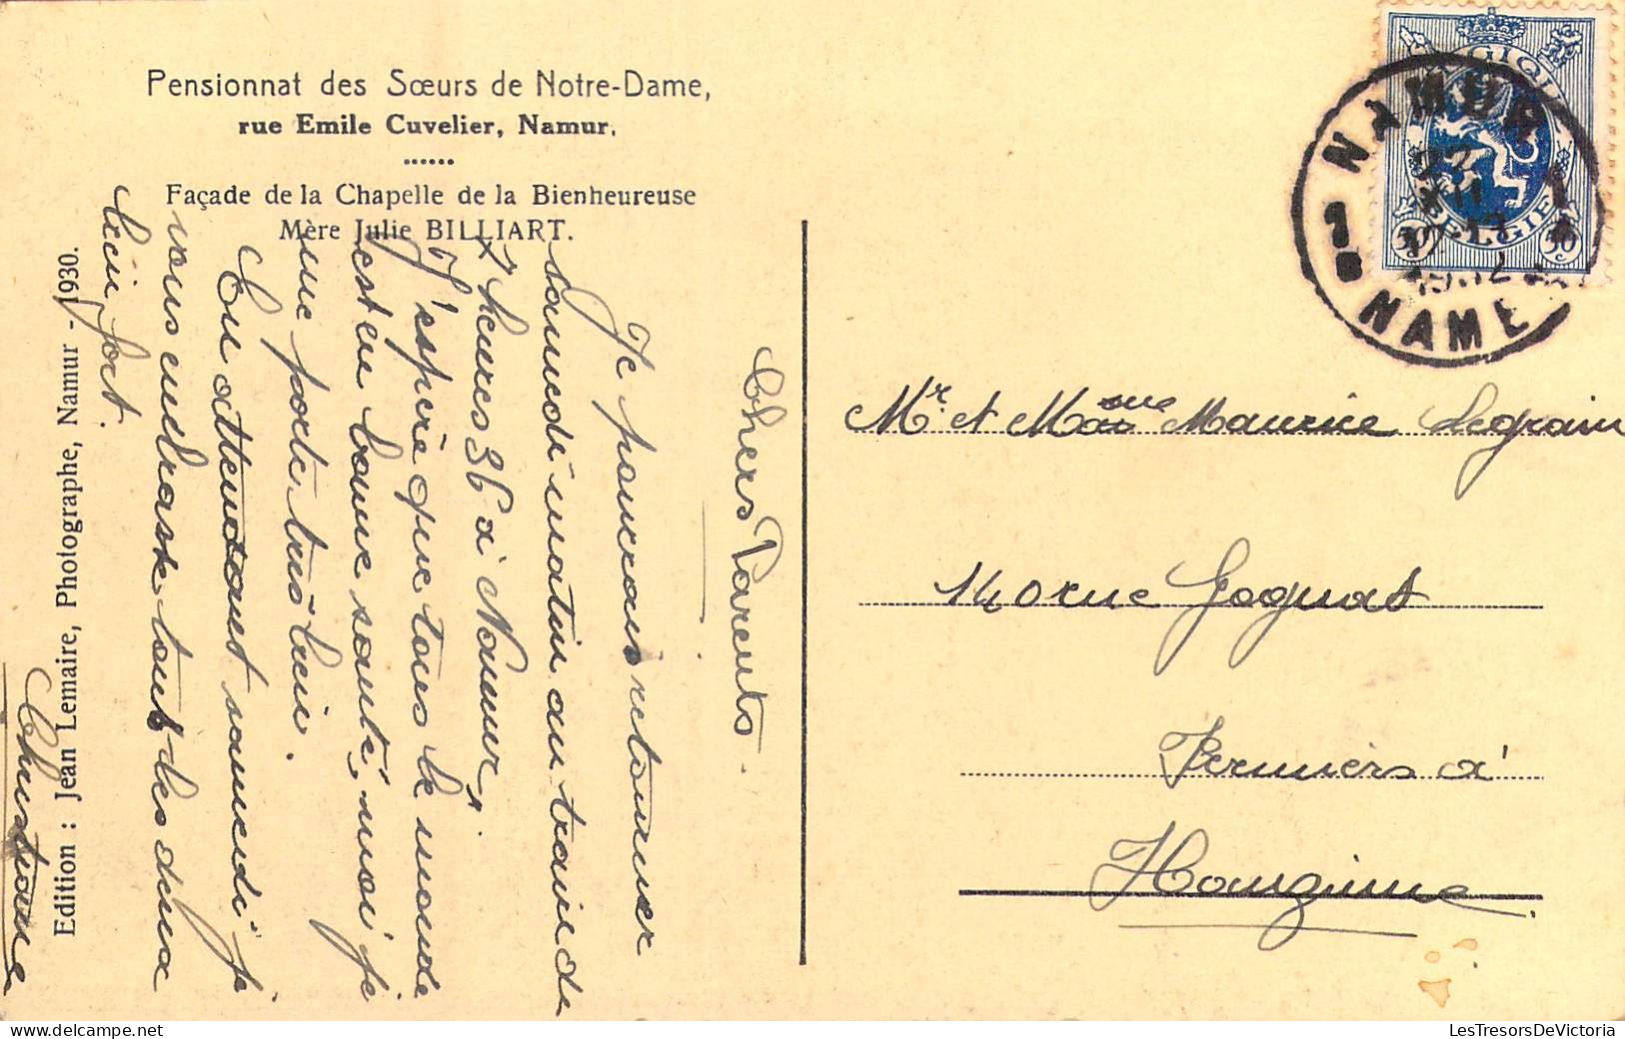 Pensionnat des Sœurs de Notre-Dame,
rue Emile Cuvelier, Namur.
Façade de la Chapelle de la Bienheureuse
Mère Julie BILLIART.
Edition : Jean Lemaire, Photographe, Namur - 1930.
Chers Parents.
Je pourrais retourner
samedi matin au train de
7 heures 36 à Namur.
J'espère que tous le monde
est en bonne santé, moi je
me porte très bien.
En attendant samedi je
vous embrasse tous des deux
bien fort.
Christiane
BELGIQUE
BELGIE
50 c
50 c
NAMUR 1
NAMEN
Mr. et Mme Maurice Legrain
140 rue
à